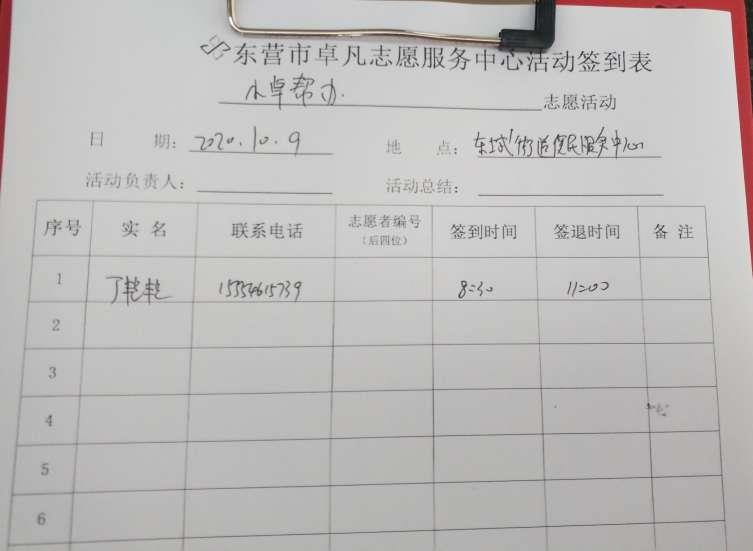 东营市卓凡志愿服务中心活动签到表
小卓帮办. 志愿活动
日 期: 2020.10.9 地 点: 东城街道便民服务中心
活动负责人: 活动总结:
序号 实 名 联系电话 志愿者编号 签到时间 签退时间 备 注
(后四位)
1 丁艳艳 15554615739 8:30 11:00
2
3
4
5
6